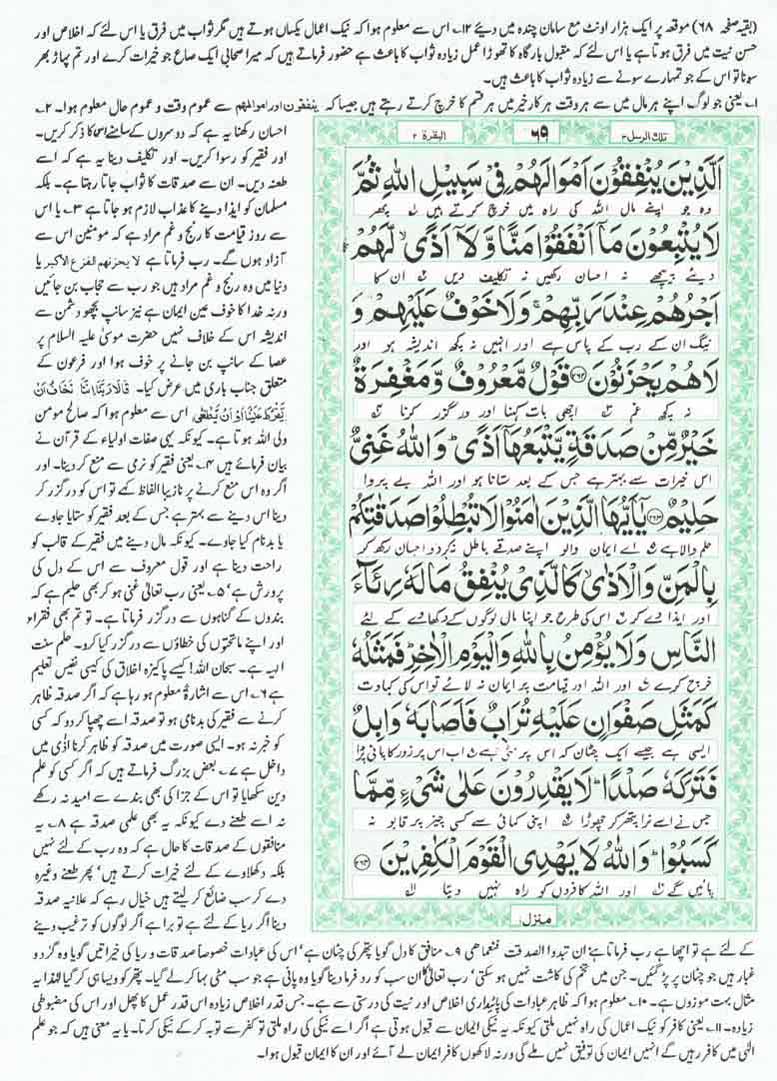 (بقیہ صفحہ ۶۸) موقعہ پر ایک ہزار اونٹ مع سامان چندہ میں دیئے ۱۲؎ اس سے معلوم ہوا کہ نیک اعمال یکساں ہوتے ہیں مگر ثواب میں فرق یا اس لئے کہ اخلاص اور
حسن نیت میں فرق ہوتا ہے یا اس لئے کہ مقبول بارگاہ کا تھوڑا عمل زیادہ ثواب کا باعث ہے حضور فرماتے ہیں کہ میرا صحابی ایک صاع جو خیرات کرے اور تم پہاڑ بھر
سونا تو اس کے جو تمہارے سونے سے زیادہ ثواب کا باعث ہیں۔
۱؎ یعنی جو لوگ اپنے ہر مال میں سے ہر وقت ہر کار خیر میں ہر قسم کا خرچ کرتے رہتے ہیں جیسا کہ ینفقون اور اموالهم سے عموم وقت و عموم حال معلوم ہوا۔ ۲؎
تلك الرسل ۳
۶۹
البقرة ۲
اَلَّذِيْنَ يُنْفِقُوْنَ اَمْوَالَهُمْ فِيْ سَبِيْلِ اللّٰهِ ثُمَّ
وہ جو اپنے مال اللہ کی راہ میں خرچ کرتے ہیں پھر
لَا يُتْبِعُوْنَ مَاۤ اَنْفَقُوْا مَنًّا وَّلَاۤ اَذًىۙ لَّهُمْ
دیئے پیچھے نہ احسان رکھیں نہ تکلیف دیں ان کا
اَجْرُهُمْ عِنْدَ رَبِّهِمْۚ وَلَا خَوْفٌ عَلَيْهِمْ وَ
نیگ ان کے رب کے پاس ہے اور انہیں نہ کچھ اندیشہ ہو اور
لَا هُمْ يَحْزَنُوْنَ ۲۶۲ قَوْلٌ مَّعْرُوْفٌ وَّمَغْفِرَةٌ
نہ کچھ غم اچھی بات کہنا اور درگزر کرنا
خَيْرٌ مِّنْ صَدَقَةٍ يَّتْبَعُهَاۤ اَذًىؕ وَاللّٰهُ غَنِيٌّ
اس خیرات سے بہتر ہے جس کے بعد ستانا ہو اور اللہ بے پروا
حَلِيْمٌ ۲۶۳ يٰۤاَيُّهَا الَّذِيْنَ اٰمَنُوْا لَا تُبْطِلُوْا صَدَقٰتِكُمْ
حلم والا ہے اے ایمان والو اپنے صدقے باطل نہ کر دو احسان رکھ کر
بِالْمَنِّ وَالْاَذٰىۙ كَالَّذِيْ يُنْفِقُ مَالَهٗ رِئَآءَ
اور ایذا دے کر اس کی طرح جو اپنا مال لوگوں کے دکھاوے کے لئے
النَّاسِ وَلَا يُؤْمِنُ بِاللّٰهِ وَالْيَوْمِ الْاٰخِرِؕ فَمَثَلُهٗ
خرچ کرے اور اللہ اور قیامت پر ایمان نہ لائے تو اس کی کہاوت
كَمَثَلِ صَفْوَانٍ عَلَيْهِ تُرَابٌ فَاَصَابَهٗ وَابِلٌ
ایسی ہے جیسے ایک چٹان کہ اس پر مٹی ہے اب اس پر زور کا پانی پڑا
فَتَرَكَهٗ صَلْدًاؕ لَا يَقْدِرُوْنَ عَلٰى شَيْءٍ مِّمَّا
جس نے اسے نرا پتھر کر چھوڑا اپنی کمائی سے کسی چیز پر قابو نہ
كَسَبُوْاؕ وَاللّٰهُ لَا يَهْدِي الْقَوْمَ الْكٰفِرِيْنَ ۲۶۴
پائیں گے اور اللہ کافروں کو راہ نہیں دیتا
منزل ۱
احسان رکھنا یہ ہے کہ دوسروں کے سامنے اس کا ذکر کریں۔
اور فقیر کو رسوا کریں۔ اور تکلیف دینا یہ ہے کہ اسے
طعنہ دیں۔ ان سے صدقات کا ثواب جاتا رہتا ہے۔ بلکہ
مسلمان کو ایذا دینے کا عذاب لازم ہو جاتا ہے ۳؎ یا اس
سے روز قیامت کا رنج و غم مراد ہے کہ مومنین اس سے
آزاد ہوں گے۔ رب فرماتا ہے لا يحزنهم الفزع الاكبر یا
دنیا میں وہ رنج و غم مراد ہیں جو رب سے حجاب بن جائیں
ورنہ خدا کا خوف عین ایمان ہے نیز سانپ بچھو دشمن سے
اندیشہ اس کے خلاف نہیں حضرت موسیٰ علیہ السلام پر
عصا کے سانپ بن جانے پر خوف ہوا اور فرعون کے
متعلق جناب باری میں عرض کیا۔ قَالَا رَبَّنَا اِنَّنَا نَخَافُ اَنْ
يَّفْرُطَ عَلَيْنَا اَوْ اَنْ يَّطْغٰى اس سے معلوم ہوا کہ صالح مومن
ولی اللہ ہوتا ہے۔ کیونکہ یہی صفات اولیاء کے قرآن نے
بیان فرمائے ہیں ۴؎ یعنی فقیر کو نرمی سے منع کر دینا۔ اور
اگر وہ اس منع کرنے پر نازیبا الفاظ کہے تو اس کو درگزر کر
دینا اس دینے سے بہتر ہے جس کے بعد فقیر کو ستایا جاوے
یا بدنام کیا جاوے۔ کیونکہ مال دینے میں فقیر کے قالب کو
راحت دینا ہے اور قول معروف سے اس کے دل کی
پرورش ہے ۵؎ یعنی رب تعالٰی غنی ہو کر بھی حلیم ہے کہ
بندوں کے گناہوں سے درگزر فرماتا ہے۔ تو تم بھی فقراء
اور اپنے ماتحتوں کی خطاؤں سے درگزر کیا کرو۔ حلم سنت
الہیہ ہے۔ سبحان اللہ! کیسے پاکیزہ اخلاق کی کیسی نفیس تعلیم
ہے ۶؎ اس سے اشارۃً معلوم ہو رہا ہے کہ اگر صدقہ ظاہر
کرنے سے فقیر کی بدنامی ہو تو صدقہ اسے چھپا کر دو کہ کسی
کو خبر نہ ہو۔ ایسی صورت میں صدقہ کو ظاہر کرنا اذٰی میں
داخل ہے ۷؎ بعض بزرگ فرماتے ہیں کہ اگر کسی کو علم
دین سکھایا تو اس کے جزا کی بھی بندے سے امید نہ رکھے
نہ اسے طعنے دے کیونکہ یہ بھی علمی صدقہ ہے ۸؎ یہ
منافقوں کے صدقات کا حال ہے کہ وہ رب کے لئے نہیں
بلکہ دکھلاوے کے لئے خیرات کرتے ہیں پھر طعنے وغیرہ
دے کر سب ضائع کر لیتے ہیں خیال رہے کہ علانیہ صدقہ
دینا اگر ریا کے لئے ہے تو برا ہے اگر لوگوں کو ترغیب دینے
کے لئے ہے تو اچھا ہے رب فرماتا ہے ان تبدوا الصدقت فنعماهی ۹؎ منافق کا دل گویا پتھر کی چٹان ہے اس کی عبادات خصوصاً صدقات و ریا کی خیراتیں گویا وہ گرد و
غبار ہیں جو چٹان پر پڑ گئیں۔ جن میں تخم کی کاشت نہیں ہو سکتی رب تعالٰی کا ان سب کو رد فرما دینا گویا وہ پانی ہے جو سب مٹی بہا کر لے گیا۔ پتھر کو ویسا ہی کر گیا لہٰذا یہ
مثال بہت موزوں ہے۔ ۱۰؎ معلوم ہوا کہ ظاہر عبادات کی پائیداری اخلاص اور نیت کی درستی سے ہے۔ جس قدر اخلاص زیادہ اس قدر عمل کا پھل اور اس کی مضبوطی
زیادہ۔ ۱۱؎ یعنی کافر کو نیک اعمال کی راہ نہیں ملتی کیونکہ یہ نیکی ایمان سے قبول ہوتی ہے اگر اسے نیکی کی راہ ملتی تو کفر سے توبہ کر کے نیکی کرتا۔ یا یہ معنی ہیں کہ جو علم
الٰہی میں کافر رہیں گے انہیں ایمان کی توفیق نہیں ملے گی ورنہ لاکھوں کافر ایمان لے آئے اور ان کا ایمان قبول ہوا۔